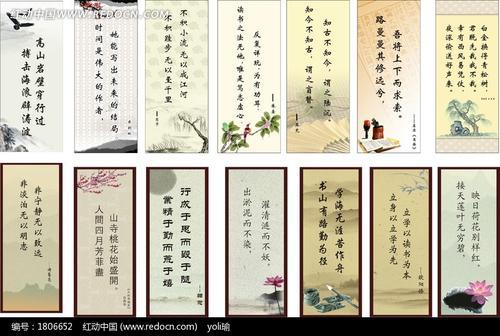 红动中国 WWW.REDOCN.COM
嵩山岩壁穿行过
搏击海浪辟涛波
时间是伟大的作者，
她能写出未来的结局
不积跬步 无以至千里
不积小流 无以成江河
读书之法无他，惟是笃志虚心，
反复详玩，为有功耳。
知今不知古，谓之盲瞽。
知古不知今，谓之陆沉，
路曼曼其修远兮，
吾将上下而求索。
非淡泊无以明志
非宁静无以致远
人間四月芳菲盡
山寺桃花始盛開。
業精于勤而荒于嬉
行成于思而毁于随
出淤泥而不染，
濯清涟而不妖。
书山有路勤为径
学海无涯苦作舟
立身以立学为先
立学以读书为本
接天莲叶无穷碧，
映日荷花别样红。
编号：1806652 红动中国 (www.redocn.com) yoli瑜